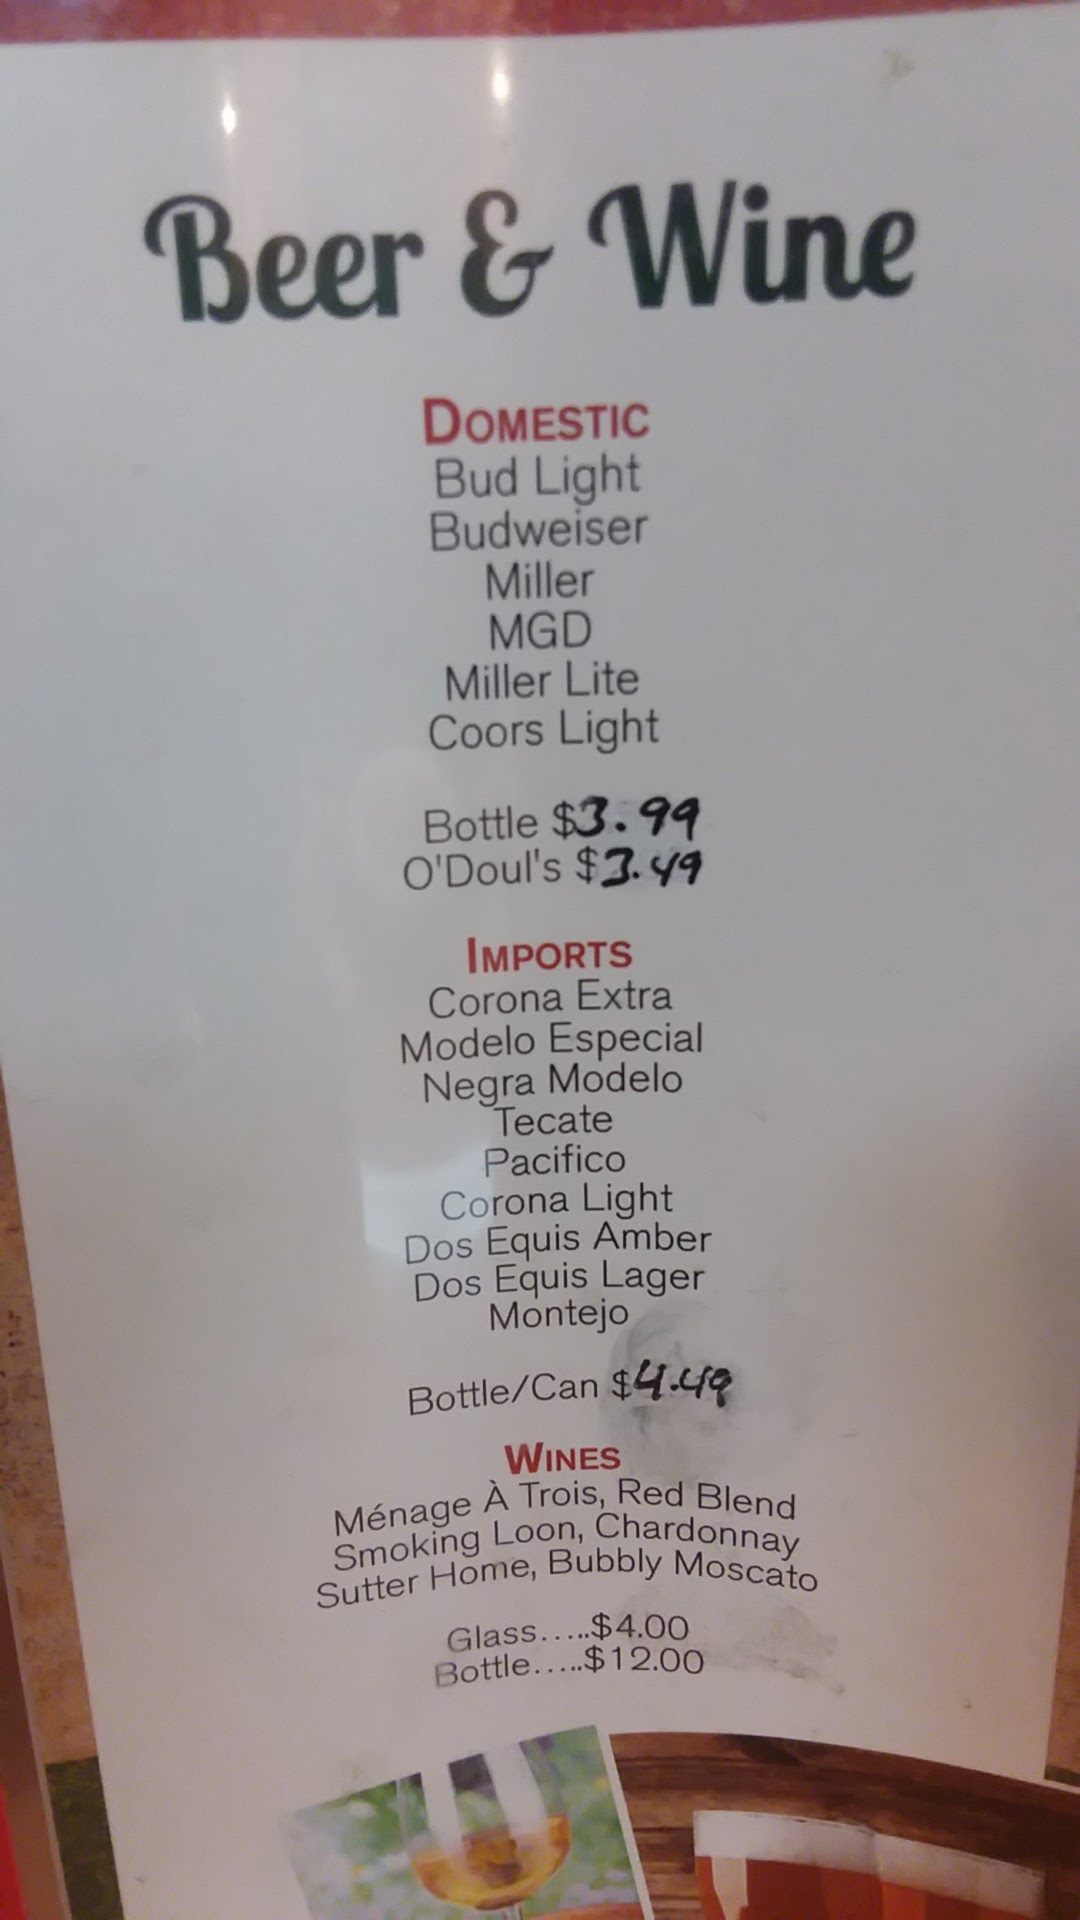 Beer & Wine
DOMESTIC
Bud Light
Budweiser
Miller
MGD
Miller Lite
Coors Light
Bottle $3.99
O'Doul's $3.49
IMPORTS
Corona Extra
Modelo Especial
Negra Modelo
Tecate
Pacifico
Corona Light
Dos Equis Amber
Dos Equis Lager
Montejo
Bottle/Can $4.49
WINES
Ménage À Trois, Red Blend
Smoking Loon, Chardonnay
Sutter Home, Bubbly Moscato
Glass.....$4.00
Bottle.....$12.00